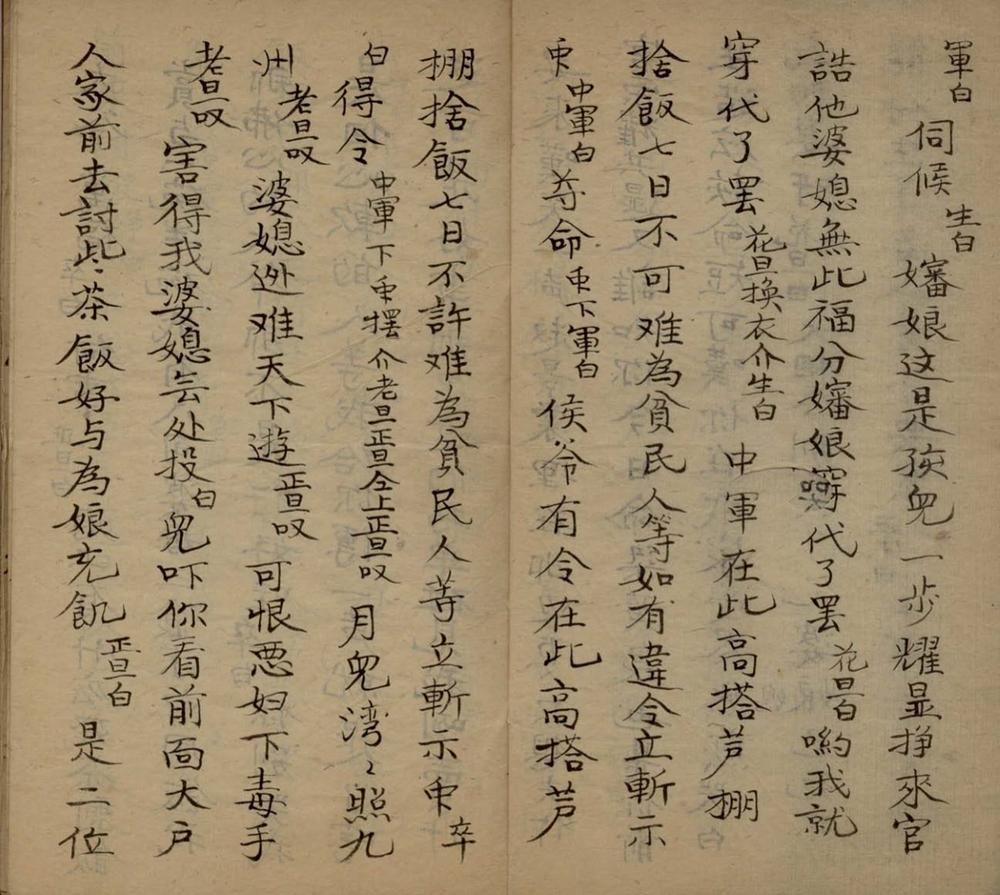 軍白 伺候 生白 嬸娘这是孩児一步耀显挣來官
誥他婆媳無此福分嬸娘穿代了罢 花旦白 喲我就
穿代了罢 花旦換衣介生白 中軍在此高搭芦棚
捨飯七日不可难為貧民人等如有違令立斬示
𠂹 中軍白 尊命 下軍白 侯爷有令在此高搭芦
棚捨飯七日不許难為貧民人等立斬示 卒
白 得令 中軍下 摆介老旦正旦仝上正旦叹 月児湾〻照九
州 老旦叹 婆媳迯难天下遊 正旦叹 可恨悪妇下毒手
老旦叹 害得我婆媳无处投 白 児吓你看前面大户
人家前去討些〻茶飯好与為娘充飢 正旦白 是二位